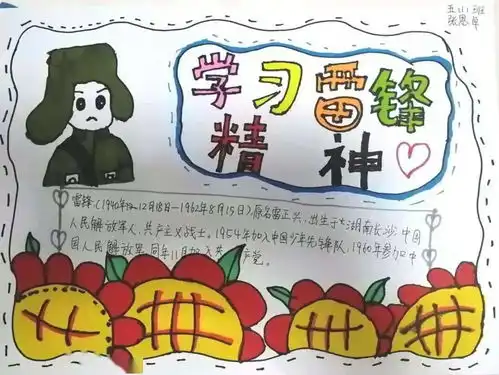 五(1)班
张恩卓
学习雷锋
精神
雷锋(1940年12月18日—1962年8月15日)原名雷正兴,出生于湖南长沙,中国
人民解放军人,共产主义战士。1954年加入中国少年先锋队,1960年参加中
国人民解放军,同年11月加入共产党。